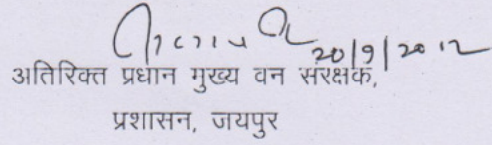 20/9/2012
अतिरिक्त प्रधान मुख्य वन संरक्षक,
प्रशासन, जयपुर